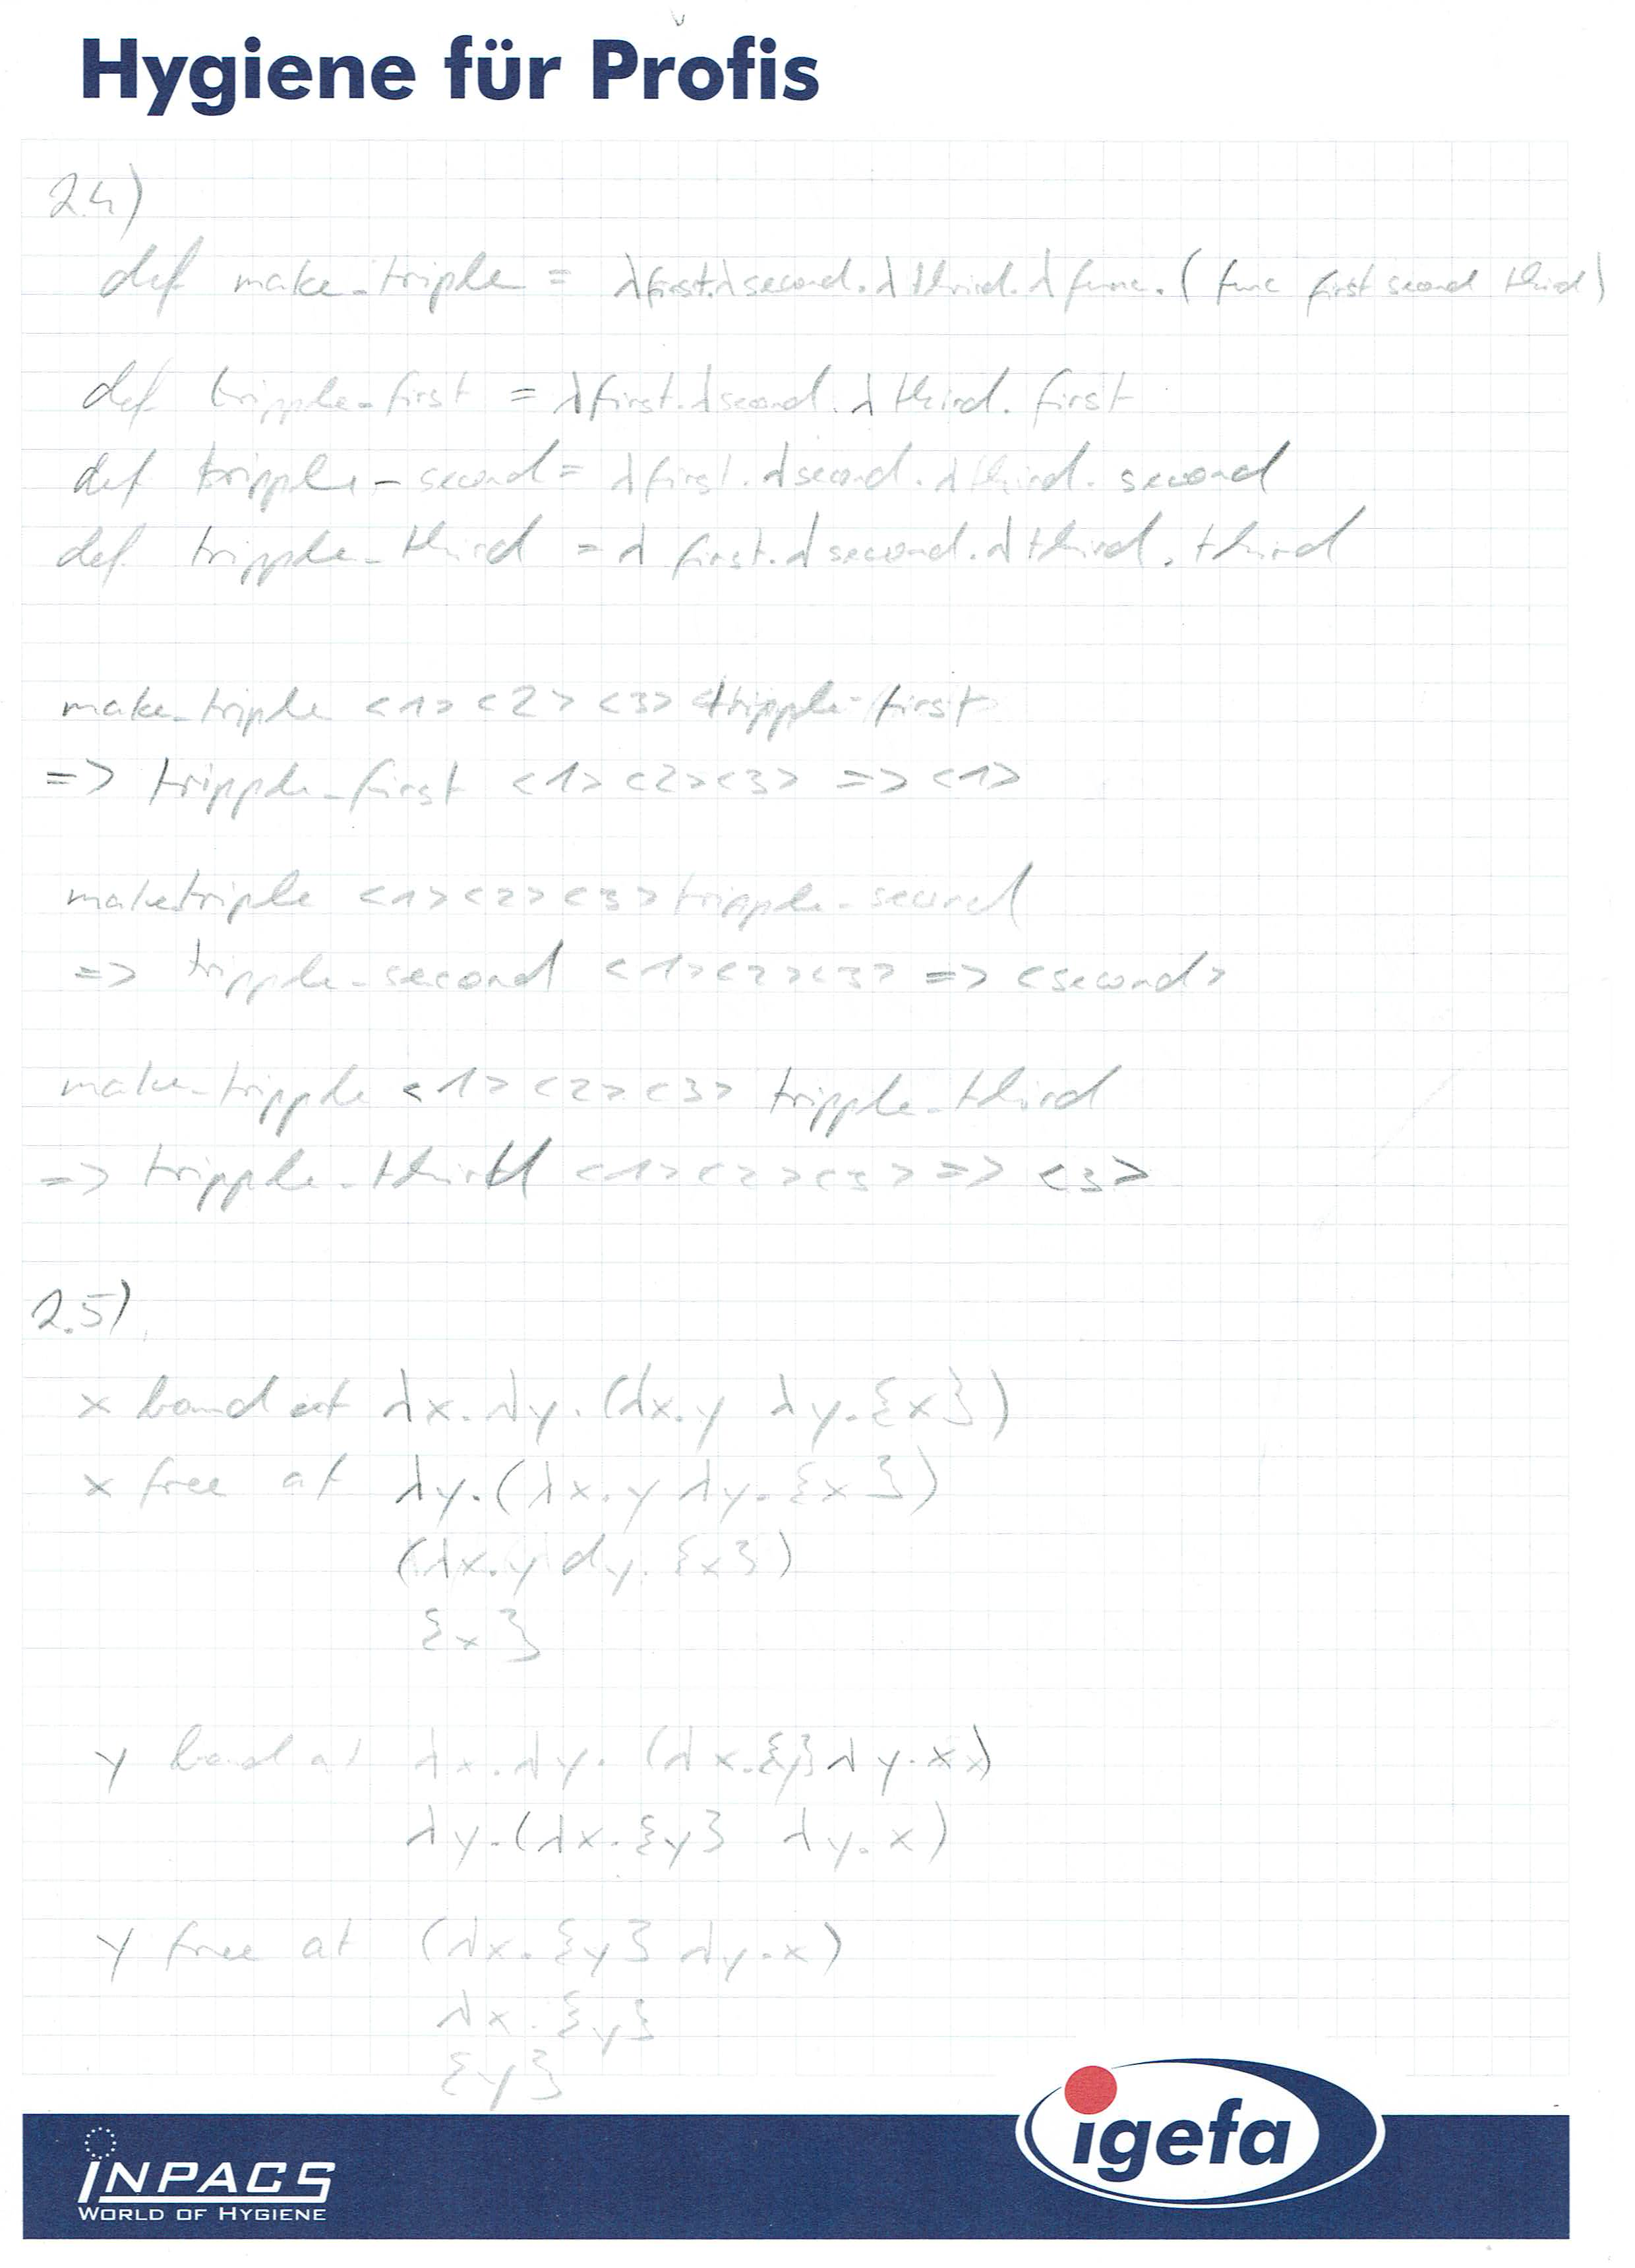 Hygiene für Profis
2.4)
def make_triple = λfirst.λsecond.λthrid.λfunc.(func first second third)
def tripple_first = λfirst.λsecond.λthird.first
def tripple_second = λfirst.λsecond.λthird.second
def tripple_third = λfirst.λsecond.λthird.third
make_triple <1> <2> <3> tripple_first
=> tripple_first <1> <2> <3> => <1>
maketriple <1> <2> <3> tripple_second
=> tripple_second <1> <2> <3> => <second>
make_tripple <1> <2> <3> tripple_third
=> tripple_third <1> <2> <3> => <3>
2.5)
x bound at λx.λy.(λx.y λy.{x})
x free at λy.(λx.y λy.{x})
(λx.y λy.{x})
{x}
y bound at λx.λy.(λx.{y} λy.x)
λy.(λx.{y} λy.x)
y free at (λx.{y} λy.x)
λx.{y}
{y}
igefa
INPACS
WORLD OF HYGIENE